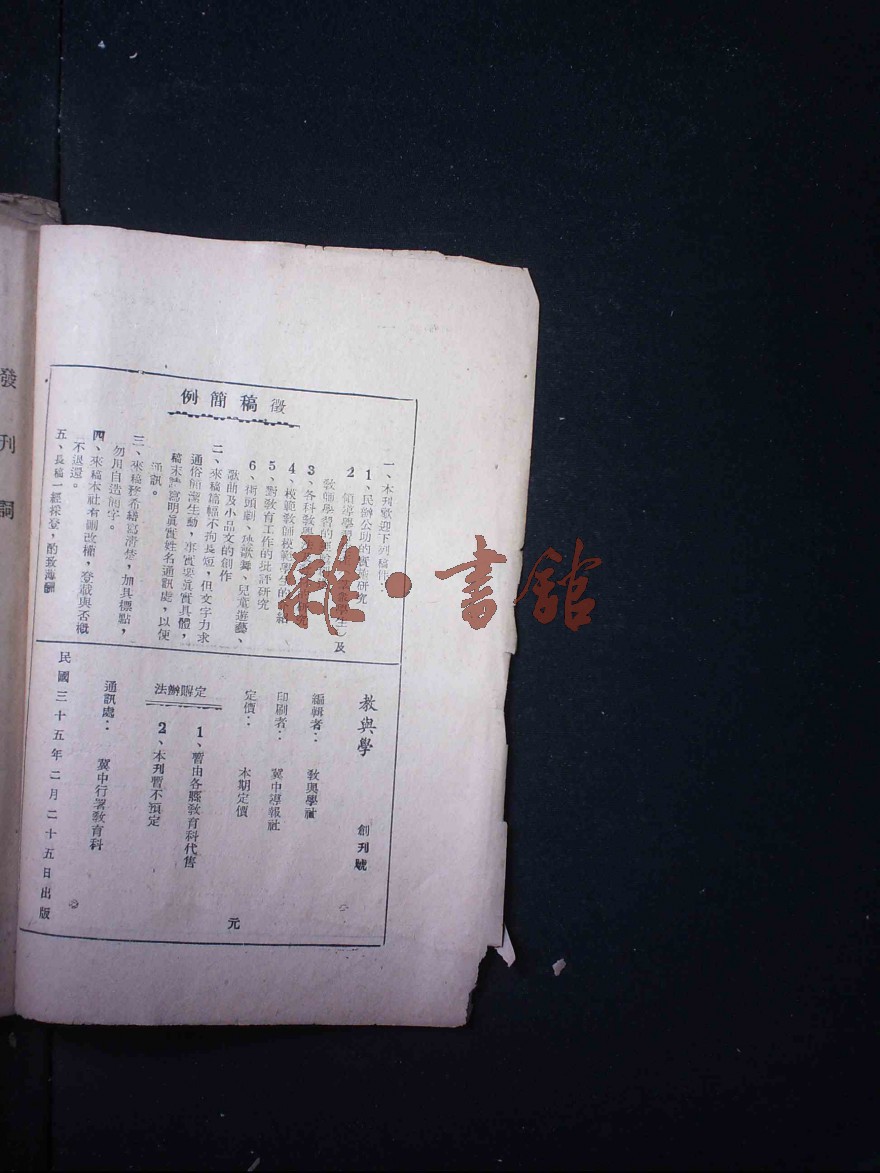 徵稿簡例
一、本刊歡迎下列稿件：
1、民辦公助的實施研究
2、領導學習 及
教師學習的
3、各科教學 研究
4、模範教師模範學生的 紹
5、對教育工作的批評研究
6、街頭劇、秧歌舞、兒童遊藝、
歌曲及小品文的創作
二、來稿篇幅不拘長短，但文字力求
通俗 生動，事實要眞實具體，
稿末請寫明眞實姓名通訊處，以便
通訊。
三、來稿務希繕寫清楚，加具標點，
勿用自造 字。
四、來稿本社有刪改權，登載與否概
不退還。
五、長稿一經採登，酌致薄酬
教與學
創刊號
編輯者： 教與學社
印刷者： 冀中導報社
定價： 本期定價 元
定購辦法
1、暫由各縣教育科代售
2、本刊暫不預定
通訊處： 冀中行署教育科
民國三十五年二月二十五日出版
發刊詞
雜·書館